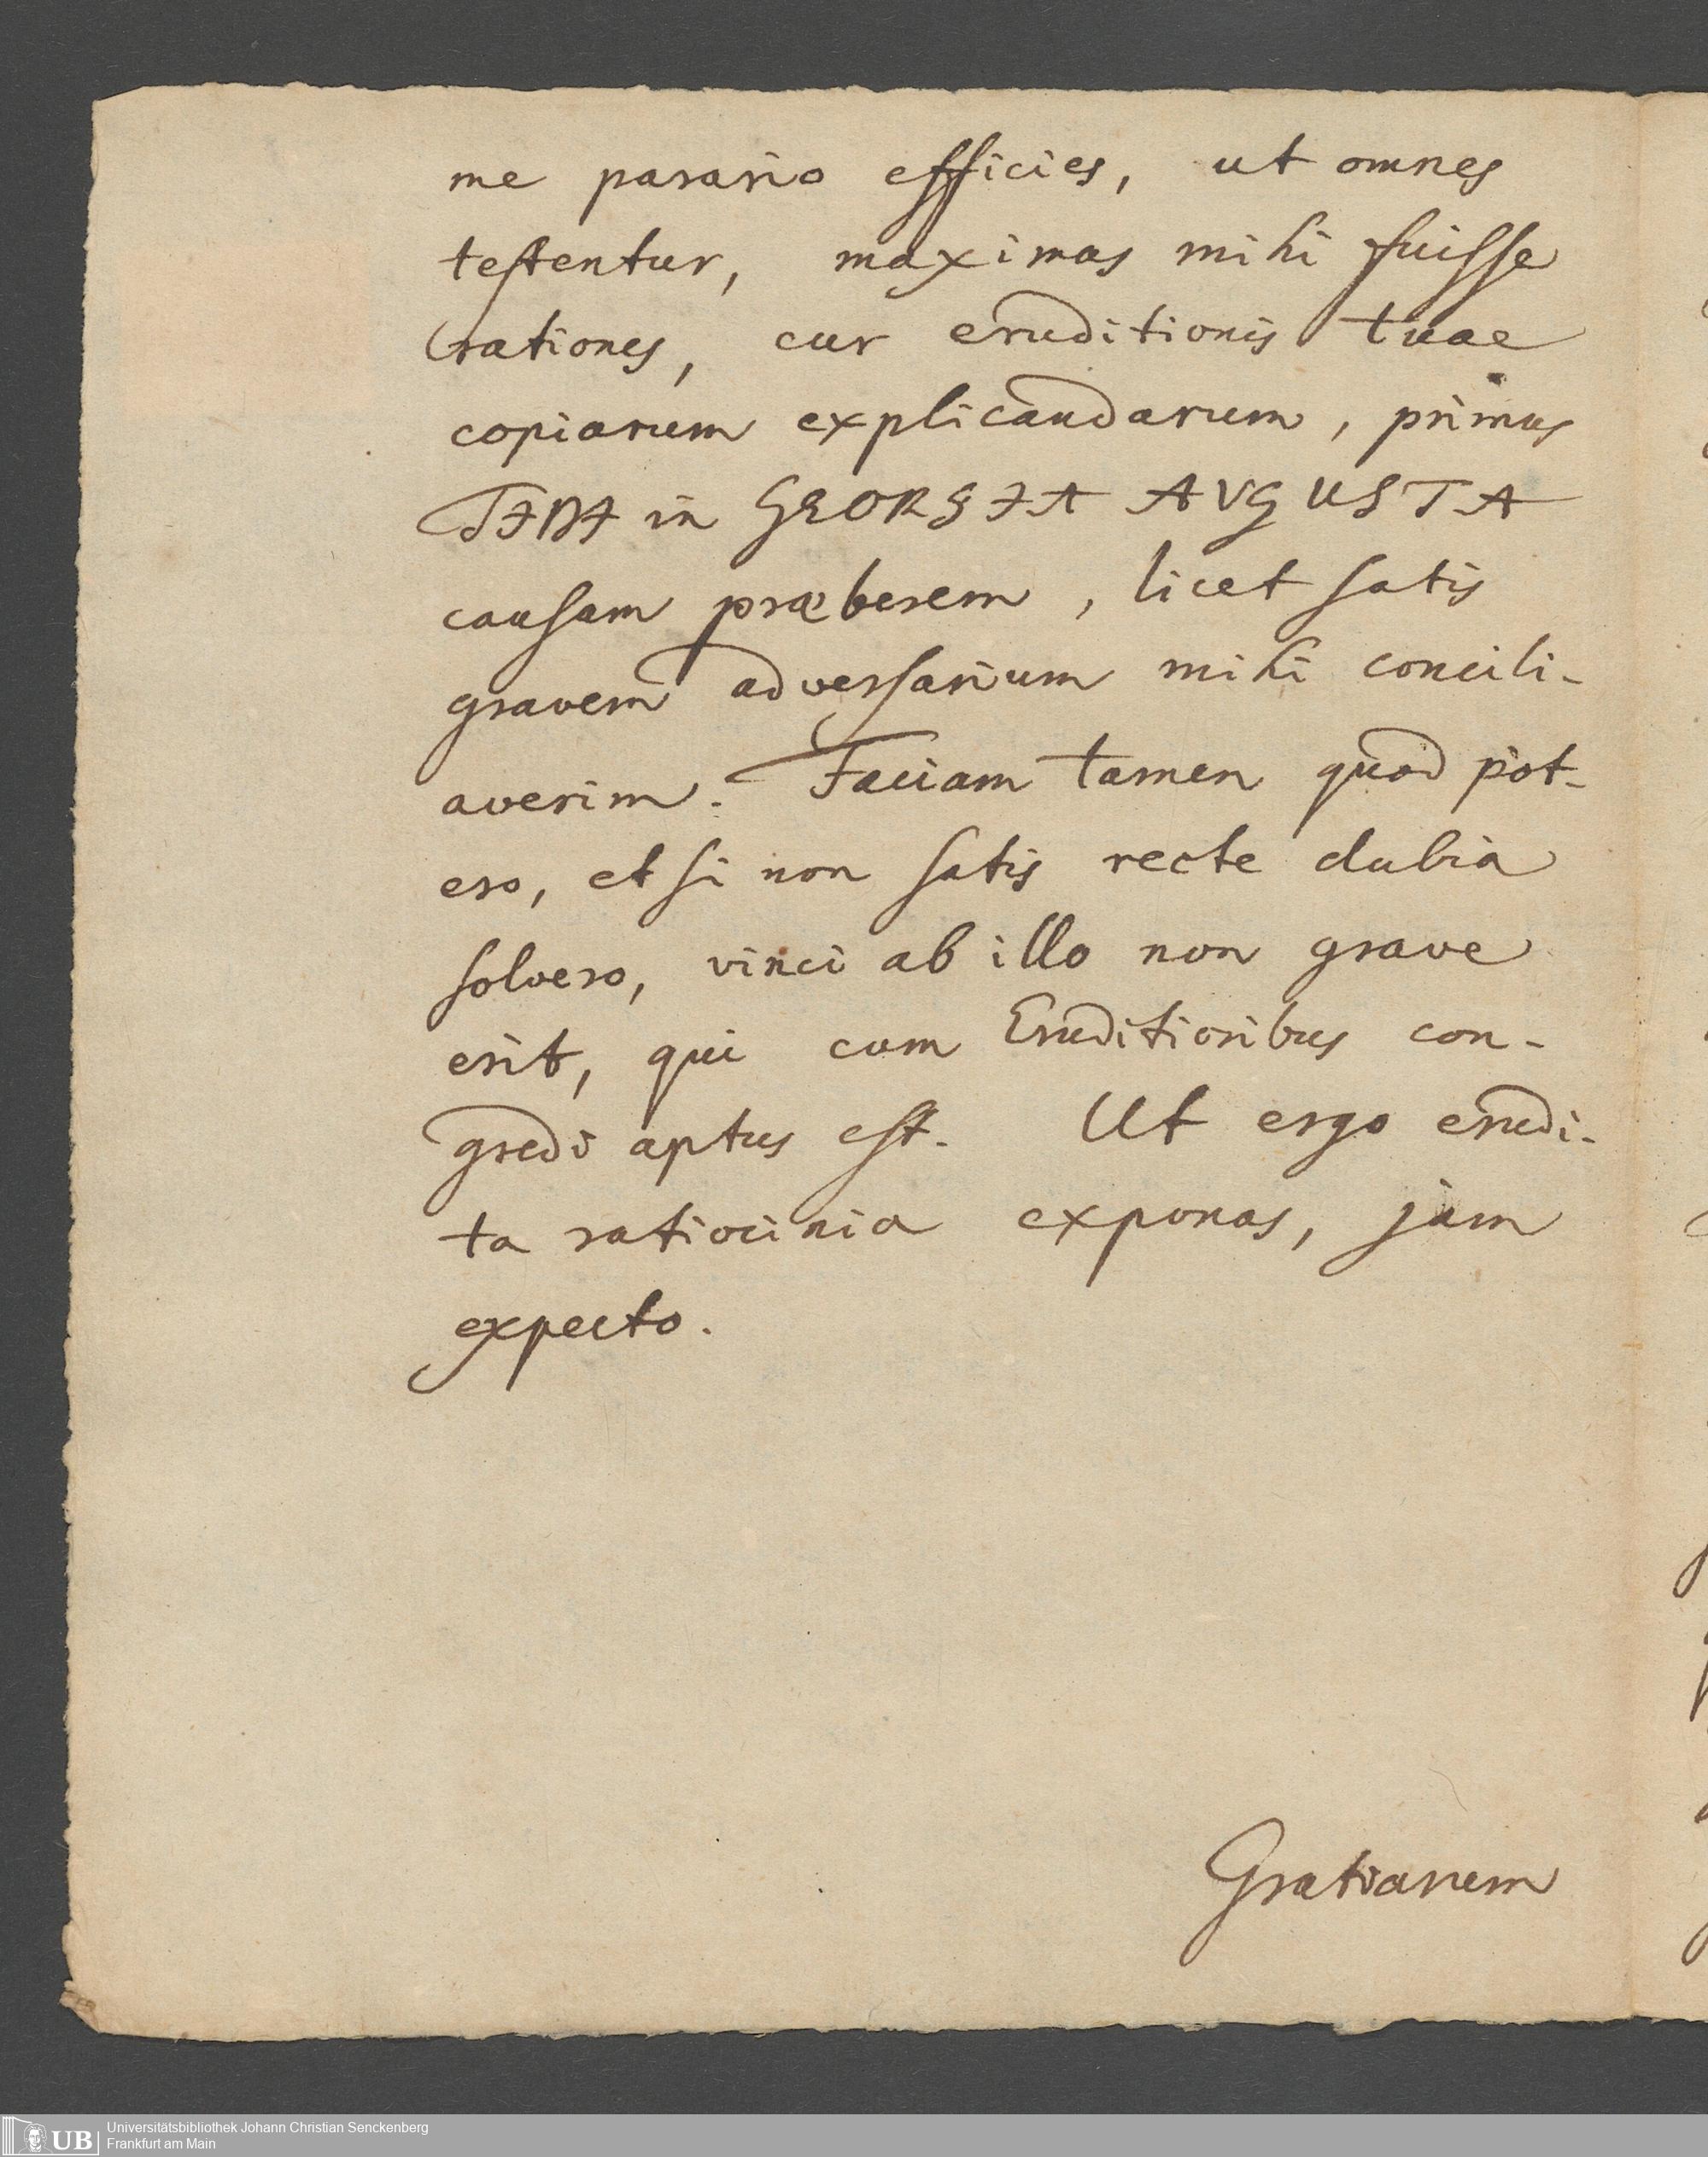 me parario efficies, ut omnes
testentur, maximas mihi fuisse
rationes, cur eruditionis tuae
copiarum explicandarum, primus
TIBI in GEORGIA AVGUSTA
causam præberem, licet satis
gravem adversarium mihi concili-
averim. Faciam tamen quod pot-
ero, et si non satis recte dubia
solvero, vinci ab illo non grave
erit, qui cum Eruditioribus con-
gredi aptus est. Ut ergo erudi-
ta ratiocinia exponas, jam
expecto.
Gratiarum
UB Universitätsbibliothek Johann Christian Senckenberg
Frankfurt am Main